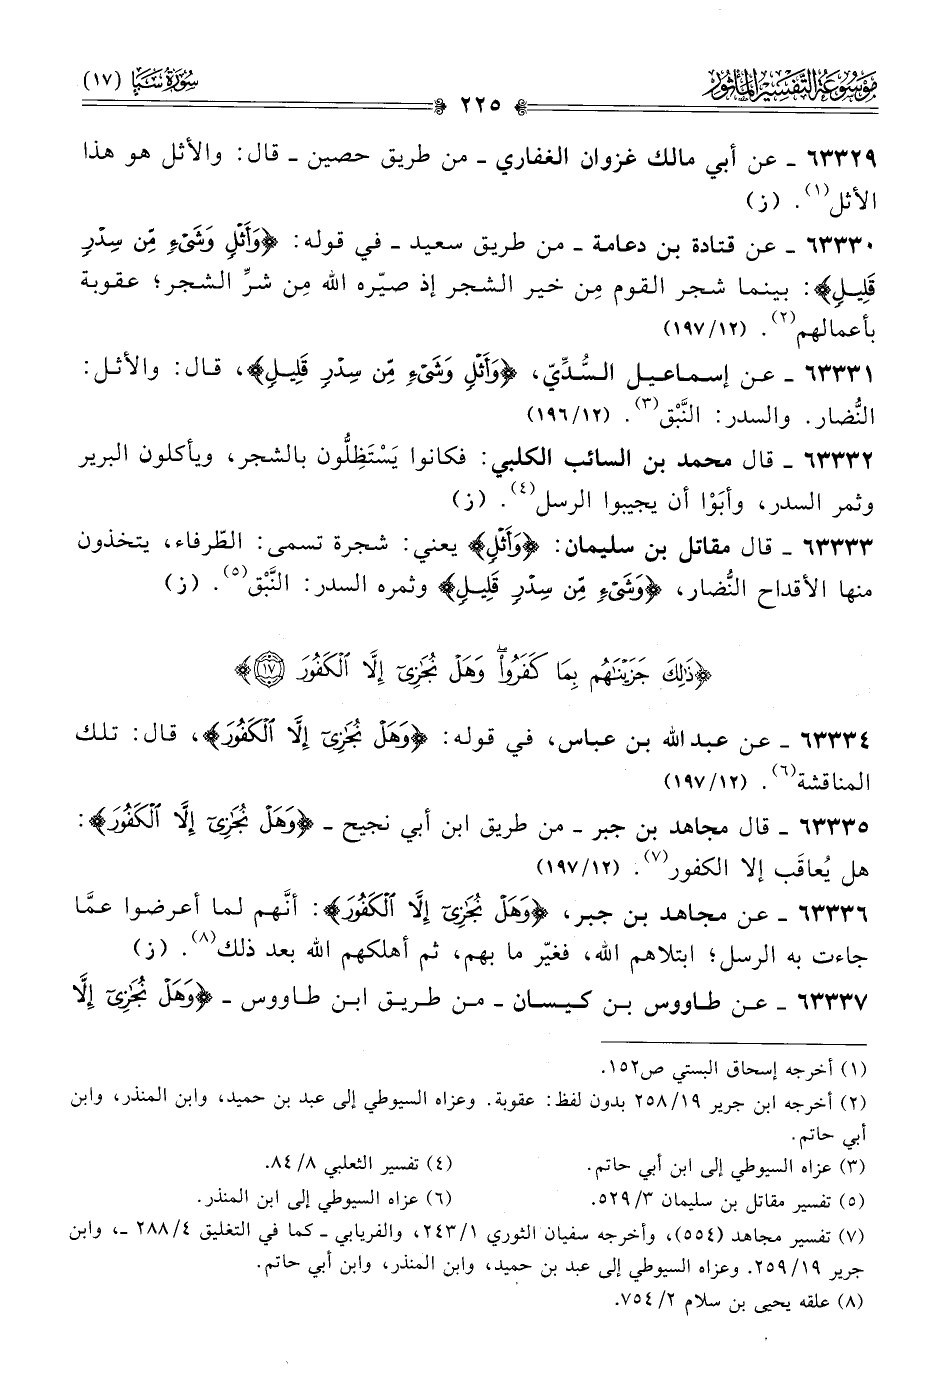 مَوْسُوعَةُ التَّفْسِيرِ المَأْثُورِ
٢٢٥
سُورَةُ سَبَإ (١٧)
٦٣٣٢٩ ـ عن أبي مالك غزوان الغفاري ـ من طريق حصين ـ قال: والأثل هو هذا
الأثل(١). (ز)
٦٣٣٣٠ ـ عن قتادة بن دعامة ـ من طريق سعيد ـ في قوله: ﴿وَأَثْلٍ وَشَىْءٍ مِّن سِدْرٍ
قَلِيلٍ﴾: بينما شجر القوم مِن خير الشجر إذ صيّره الله مِن شرِّ الشجر؛ عقوبة
بأعمالهم(٢). (١٩٧/١٢)
٦٣٣٣١ ـ عن إسماعيل السُّدِّيّ، ﴿وَأَثْلٍ وَشَىْءٍ مِّن سِدْرٍ قَلِيلٍ﴾، قال: والأثل:
النُّضار. والسدر: النَّبْق(٣). (١٩٦/١٢)
٦٣٣٣٢ ـ قال محمد بن السائب الكلبي: فكانوا يَسْتَظِلُّون بالشجر، ويأكلون البرير
وثمر السدر، وأبَوْا أن يجيبوا الرسل(٤). (ز)
٦٣٣٣٣ ـ قال مقاتل بن سليمان: ﴿وَأَثْلٍ﴾ يعني: شجرة تسمى: الطّرفاء، يتخذون
منها الأقداح النُّضار، ﴿وَشَىْءٍ مِّن سِدْرٍ قَلِيلٍ﴾ وثمره السدر: النَّبْق(٥). (ز)
﴿ذَٰلِكَ جَزَيْنَٰهُم بِمَا كَفَرُواْۖ وَهَلْ نُجَٰزِىٓ إِلَّا ٱلْكَفُورَ ١٧﴾
٦٣٣٣٤ ـ عن عبد الله بن عباس، في قوله: ﴿وَهَلْ نُجَٰزِىٓ إِلَّا ٱلْكَفُورَ﴾، قال: تلك
المناقشة(٦). (١٩٧/١٢)
٦٣٣٣٥ ـ قال مجاهد بن جبر ـ من طريق ابن أبي نجيح ـ ﴿وَهَلْ نُجَٰزِىٓ إِلَّا ٱلْكَفُورَ﴾:
هل يُعاقَب إلا الكفور(٧). (١٩٧/١٢)
٦٣٣٣٦ ـ عن مجاهد بن جبر، ﴿وَهَلْ نُجَٰزِىٓ إِلَّا ٱلْكَفُورَ﴾: أنَّهم لما أعرضوا عمَّا
جاءت به الرسل؛ ابتلاهم الله، فغيّر ما بهم، ثم أهلكهم الله بعد ذلك(٨). (ز)
٦٣٣٣٧ ـ عن طاووس بن كيسان ـ من طريق ابن طاووس ـ ﴿وَهَلْ نُجَٰزِىٓ إِلَّا
(١) أخرجه إسحاق البستي ص١٥٢.
(٢) أخرجه ابن جرير ٢٥٨/١٩ بدون لفظ: عقوبة. وعزاه السيوطي إلى عبد بن حميد، وابن المنذر، وابن
أبي حاتم.
(٣) عزاه السيوطي إلى ابن أبي حاتم.
(٤) تفسير الثعلبي ٨/ ٨٤.
(٥) تفسير مقاتل بن سليمان ٣/ ٥٢٩.
(٦) عزاه السيوطي إلى ابن المنذر.
(٧) تفسير مجاهد (٥٥٤)، وأخرجه سفيان الثوري ٢٤٣/١، والفريابي ـ كما في التغليق ٢٨٨/٤ ـ، وابن
جرير ٢٥٩/١٩. وعزاه السيوطي إلى عبد بن حميد، وابن المنذر، وابن أبي حاتم.
(٨) علقه يحيى بن سلام ٢/ ٧٥٤.